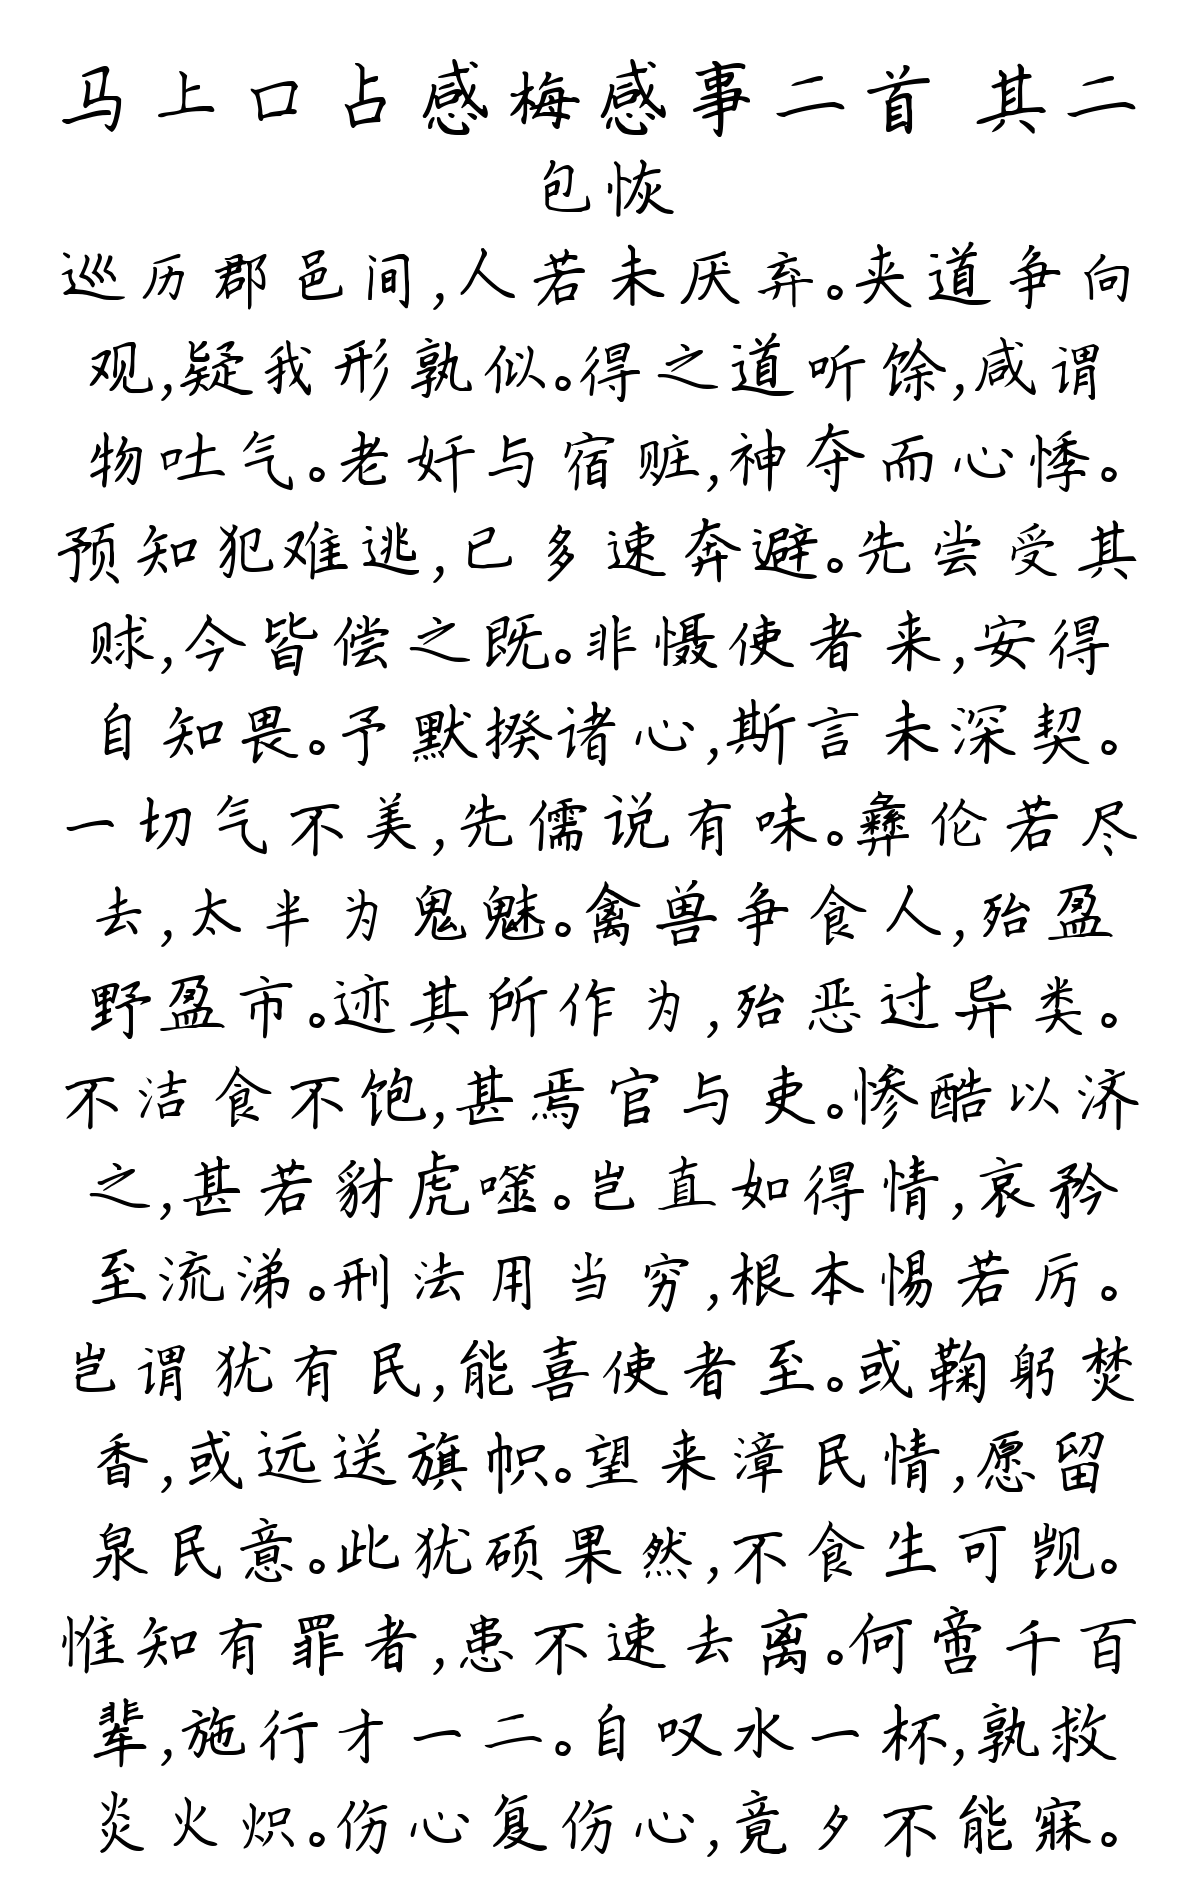 马上口占感梅感事二首 其二
包恢
巡历郡邑间,人若未厌弃。夹道争向
观,疑我形孰似。得之道听馀,咸谓
物吐气。老奸与宿赃,神夺而心悸。
预知犯难逃,已多速奔避。先尝受其
赇,今皆偿之既。非慑使者来,安得
自知畏。予默揆诸心,斯言未深契。
一切气不美,先儒说有味。彝伦若尽
去,太半为鬼魅。禽兽争食人,殆盈
野盈市。迹其所作为,殆恶过异类。
不洁食不饱,甚焉官与吏。惨酷以济
之,甚若豺虎噬。岂直如得情,哀矜
至流涕。刑法用当穷,根本惕若厉。
岂谓犹有民,能喜使者至。或鞠躬焚
香,或远送旗帜。望来漳民情,愿留
泉民意。此犹硕果然,不食生可觊。
惟知有罪者,患不速去离。何啻千百
辈,施行才一二。自叹水一杯,孰救
炎火炽。伤心复伤心,竟夕不能寐。